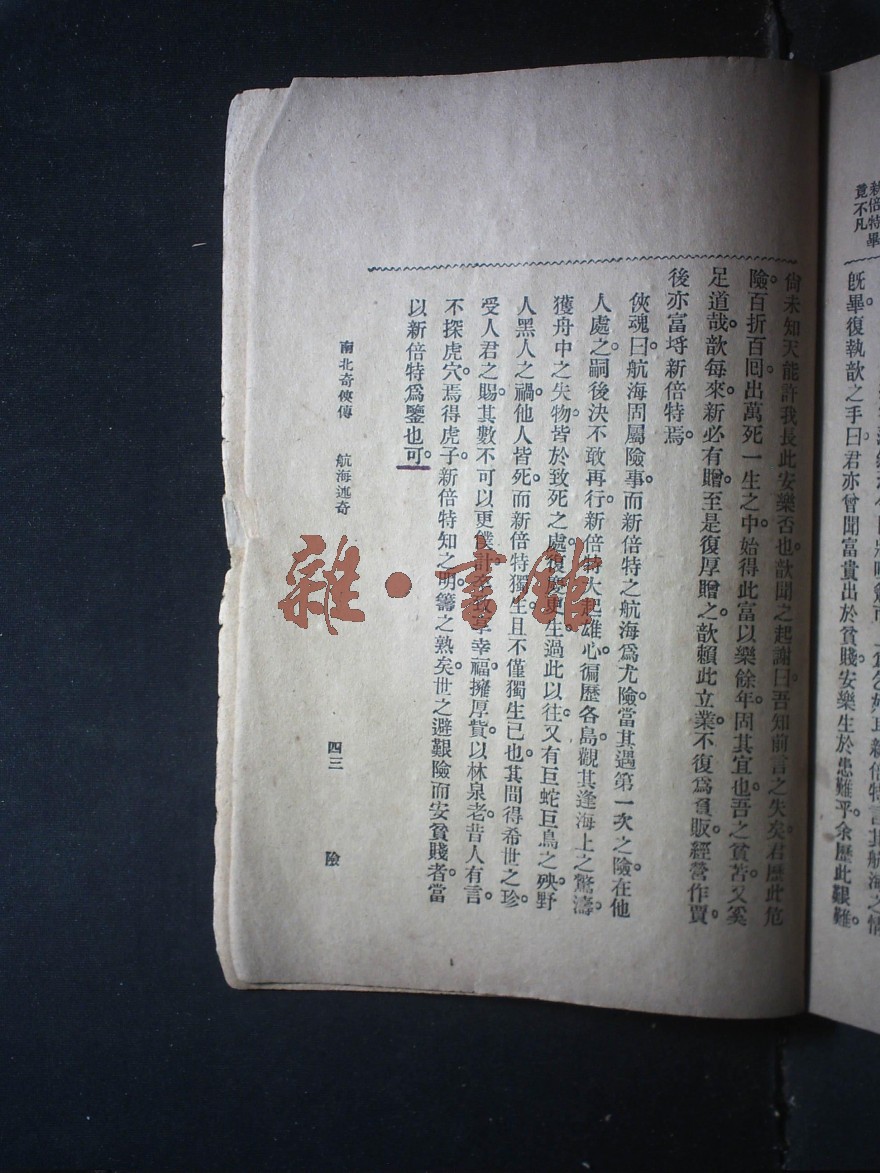 竟不凡
既畢復執歆之手曰君亦曾聞富貴出於貧賤安樂生於患難乎余歷此艱難
尙未知天能許我長此安樂否也歆聞之起謝曰吾知前言之失矣君歷此危
險百折百回出萬死一生之中始得此富以樂餘年固其宜也吾之貧苦又奚
足道哉歆每來新必有贈至是復厚贈之歆賴此立業不復爲負販經營作賈
後亦富埓新倍特焉
俠魂曰航海固屬險事而新倍特之航海爲尤險當其遇第一次之險在他
人處之嗣後決不敢再行新倍特大起雄心徧歷各島觀其逢海上之驚濤
獲舟中之失物皆於致死之處復慶更生過此以往又有巨蛇巨鳥之殃野
人黑人之禍他人皆死而新倍特獨生且不僅獨生已也其間得希世之珍
受人君之賜其數不可以更僕計享幸福擁厚貲以林泉老昔人有言
不探虎穴焉得虎子新倍特知之明籌之熟矣世之避艱險而安貧賤者當
以新倍特爲鑒也可
南北奇俠傳 航海述奇 四三 險
雜·書館